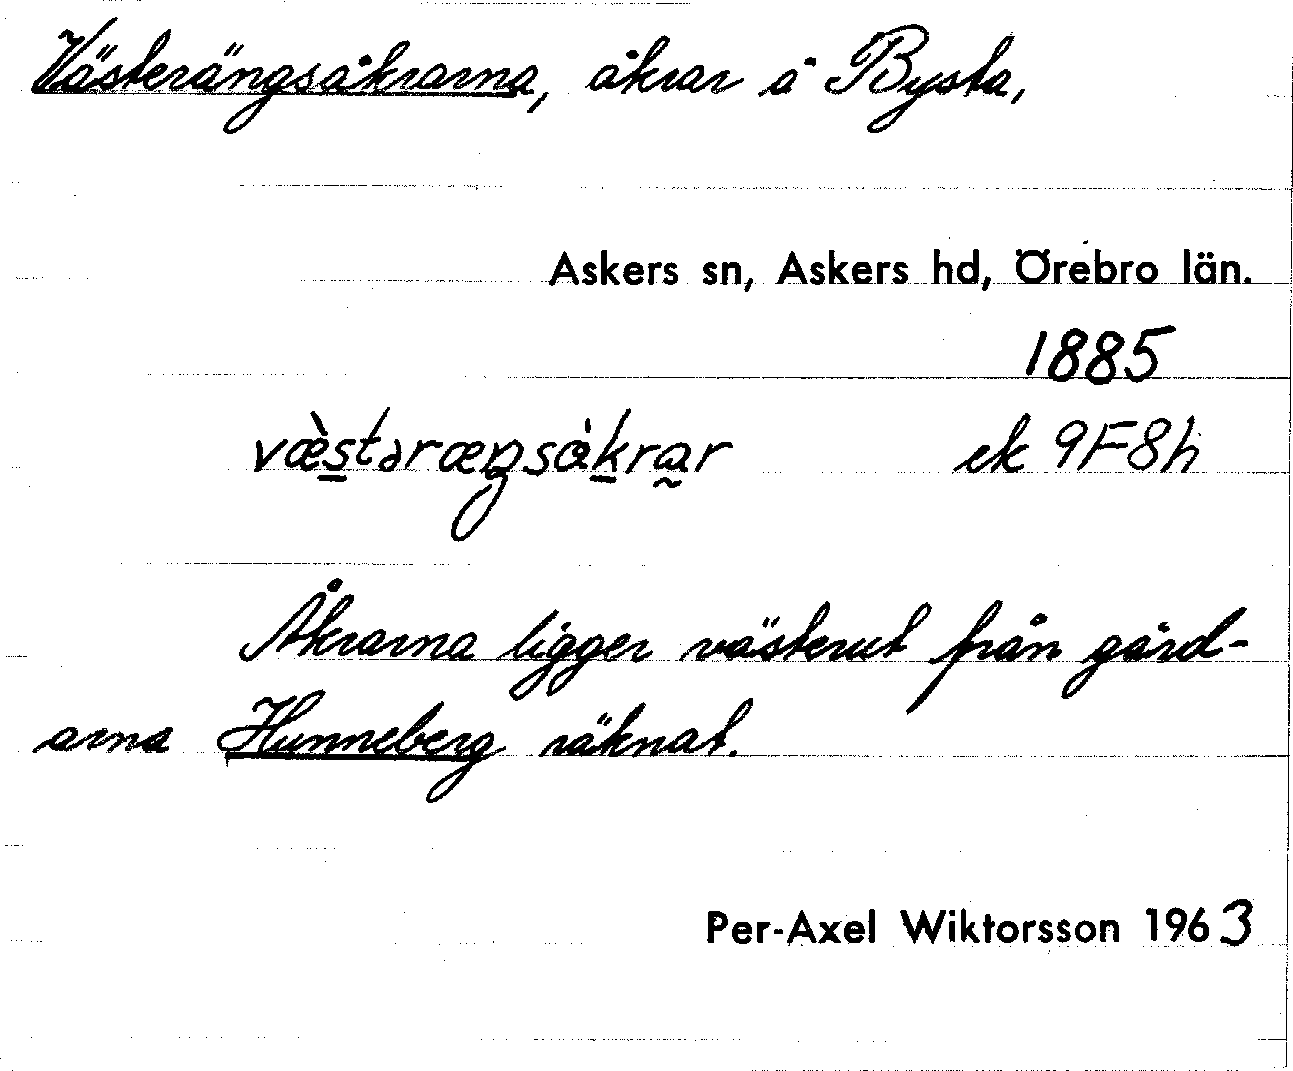 Västerängsåkrarna, åkrar å Bysta,
Askers sn, Askers hd, Örebro län.
1885
væ̀stəræŋsåkrar ek 9F8h
Åkrarna ligger västerut från gård-
arna Hunneberg räknat.
Per-Axel Wiktorsson 1963